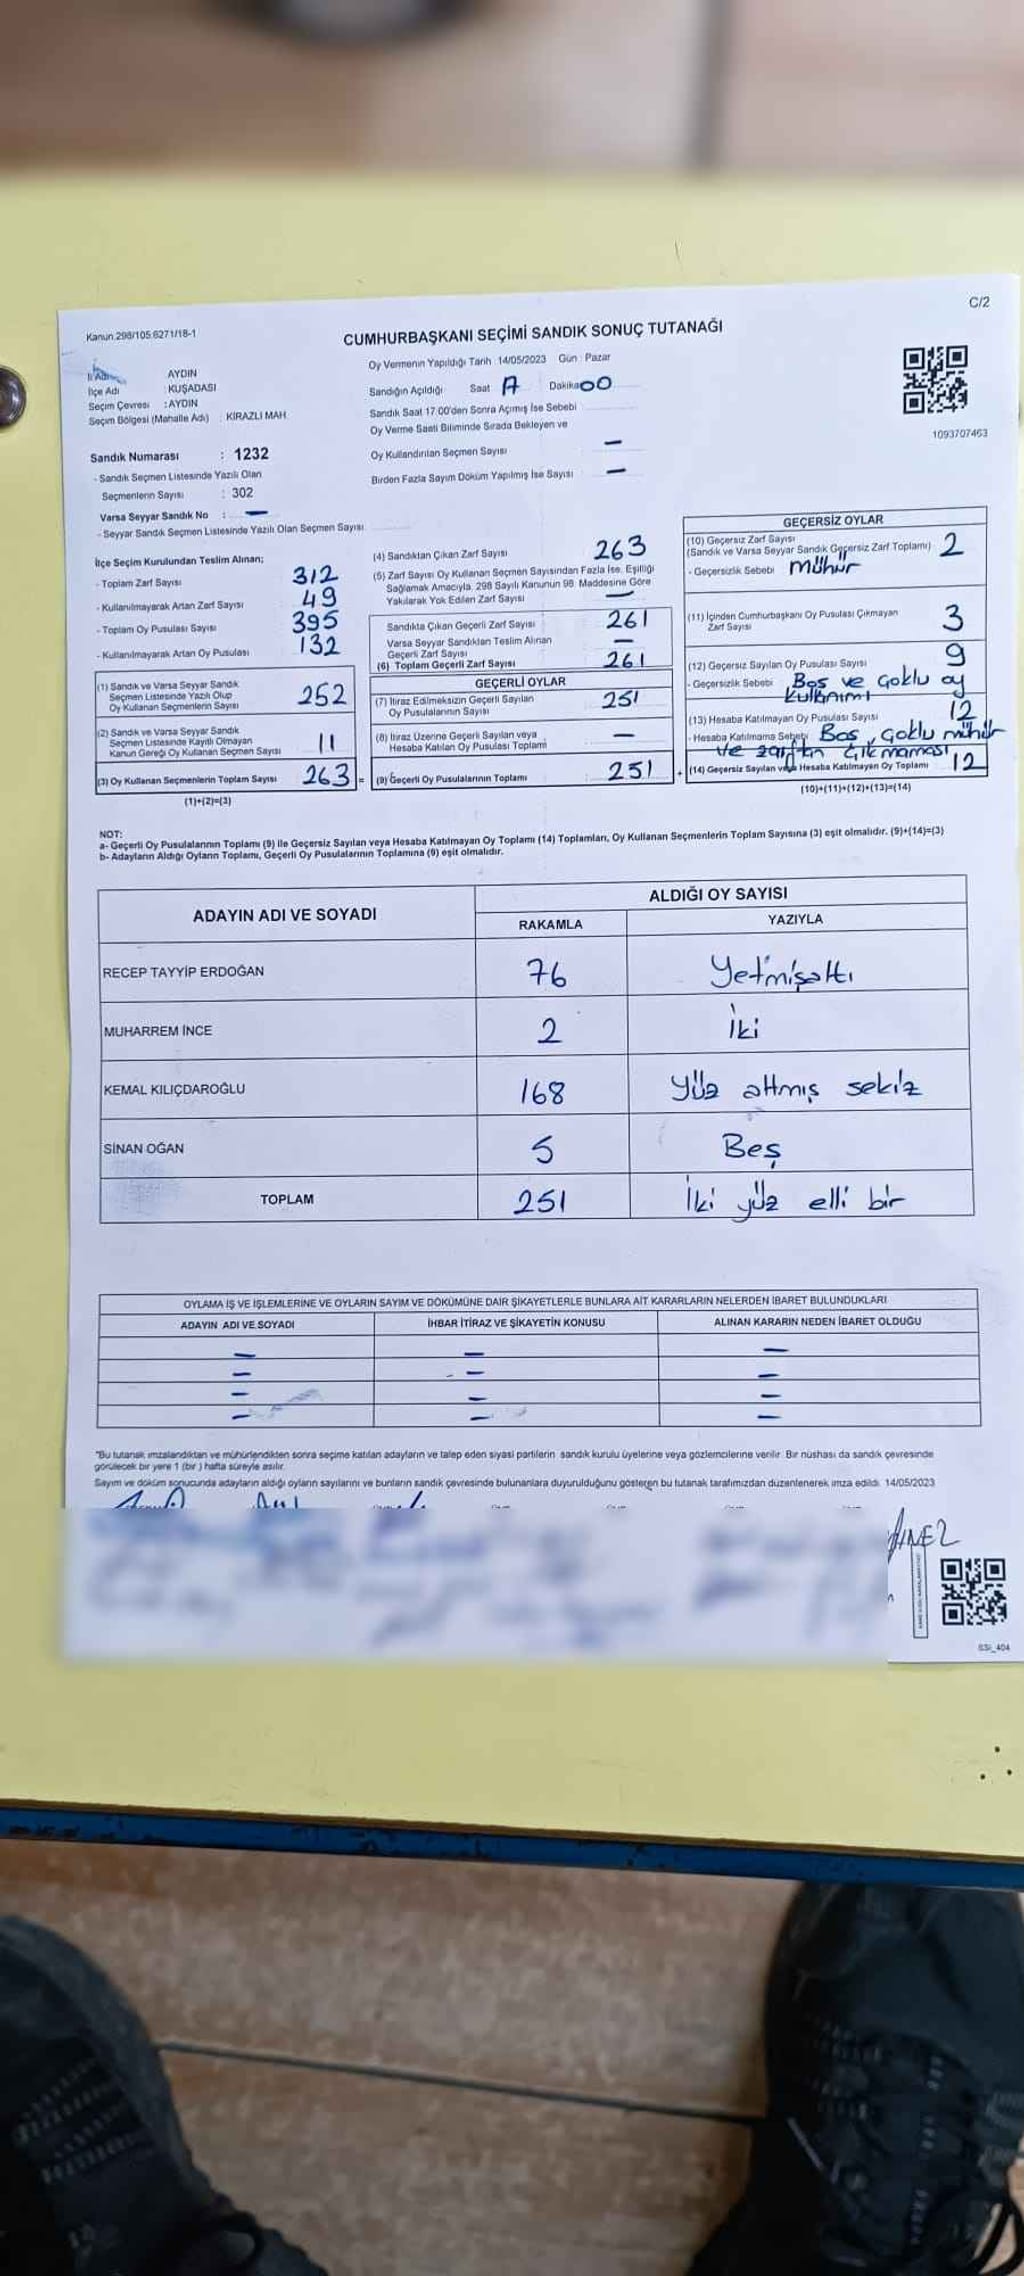 C/2
Kanun.298/105.6271/18-1
CUMHURBAŞKANI SEÇİMİ SANDIK SONUÇ TUTANAĞI
İl Adı AYDIN
İlçe Adı : KUŞADASI
Seçim Çevresi : AYDIN
Seçim Bölgesi (Mahalle Adı) : KİRAZLI MAH.
Oy Vermenin Yapıldığı Tarih 14/05/2023 Gün : Pazar
Sandığın Açıldığı Saat 17 Dakika 00
Sandık Saat 17.00'den Sonra Açımış İse Sebebi
Oy Verme Saati Bitiminde Sırada Bekleyen ve
Oy Kullandırılan Seçmen Sayısı –
Birden Fazla Sayım Döküm Yapılmış İse Sayısı –
1093707463
Sandık Numarası : 1232
- Sandık Seçmen Listesinde Yazılı Olan
Seçmenlerin Sayısı : 302
Varsa Seyyar Sandık No : –
- Seyyar Sandık Seçmen Listesinde Yazılı Olan Seçmen Sayısı
İlçe Seçim Kurulundan Teslim Alınan;
- Toplam Zarf Sayısı 312
- Kullanılmayarak Artan Zarf Sayısı 49
- Toplam Oy Pusulası Sayısı 395
- Kullanılmayarak Artan Oy Pusulası 132
(1) Sandık ve Varsa Seyyar Sandık
Seçmen Listesinde Yazılı Olup
Oy Kullanan Seçmenlerin Sayısı 252
(2) Sandık ve Varsa Seyyar Sandık
Seçmen Listesinde Kayıtlı Olmayan
Kanun Gereği Oy Kullanan Seçmen Sayısı 11
(3) Oy Kullanan Seçmenlerin Toplam Sayısı 263 =
(1)+(2)=(3)
(4) Sandıktan Çıkan Zarf Sayısı 263
(5) Zarf Sayısı Oy Kullanan Seçmen Sayısından Fazla İse, Eşitliği
Sağlamak Amacıyla, 298 Sayılı Kanunun 98. Maddesine Göre
Yakılarak Yok Edilen Zarf Sayısı –
Sandıkta Çıkan Geçerli Zarf Sayısı 261
Varsa Seyyar Sandıktan Teslim Alınan
Geçerli Zarf Sayısı –
(6) Toplam Geçerli Zarf Sayısı 261
GEÇERLİ OYLAR
(7) İtiraz Edilmeksizin Geçerli Sayılan
Oy Pusulalarının Sayısı 251
(8) İtiraz Üzerine Geçerli Sayılan veya
Hesaba Katılan Oy Pusulası Toplamı –
(9) Geçerli Oy Pusulalarının Toplamı 251 +
GEÇERSİZ OYLAR
(10) Geçersiz Zarf Sayısı
(Sandık ve Varsa Seyyar Sandık Geçersiz Zarf Toplamı) 2
- Geçersizlik Sebebi Mühür
(11) İçinden Cumhurbaşkanı Oy Pusulası Çıkmayan
Zarf Sayısı 3
(12) Geçersiz Sayılan Oy Pusulası Sayısı 9
- Geçersizlik Sebebi Boş ve Çoklu oy
kullanımı
(13) Hesaba Katılmayan Oy Pusulası Sayısı 12
- Hesaba Katılmama Sebebi Boş, Çoklu mühür
ve zarftan çıkmaması
(14) Geçersiz Sayılan veya Hesaba Katılmayan Oy Toplamı 12
(10)+(11)+(12)+(13)=(14)
NOT:
a- Geçerli Oy Pusulalarının Toplamı (9) ile Geçersiz Sayılan veya Hesaba Katılmayan Oy Toplamı (14) Toplamları, Oy Kullanan Seçmenlerin Toplam Sayısına (3) eşit olmalıdır. (9)+(14)=(3)
b- Adayların Aldığı Oyların Toplamı, Geçerli Oy Pusulalarının Toplamına (9) eşit olmalıdır.
ADAYIN ADI VE SOYADI ALDIĞI OY SAYISI
RAKAMLA YAZIYLA
RECEP TAYYİP ERDOĞAN 76 Yetmişaltı
MUHARREM İNCE 2 İki
KEMAL KILIÇDAROĞLU 168 Yüz altmış sekiz
SİNAN OĞAN 5 Beş
TOPLAM 251 İki yüz elli bir
OYLAMA İŞ VE İŞLEMLERİNE VE OYLARIN SAYIM VE DÖKÜMÜNE DAİR ŞİKAYETLERLE BUNLARA AİT KARARLARIN NELERDEN İBARET BULUNDUKLARI
ADAYIN ADI VE SOYADI İHBAR İTİRAZ VE ŞİKAYETİN KONUSU ALINAN KARARIN NEDEN İBARET OLDUĞU
– – –
– – –
– – –
– – –
"Bu tutanak imzalandıktan ve mühürlendikten sonra seçime katılan adayların ve talep eden siyasi partilerin sandık kurulu üyelerine veya gözlemcilerine verilir. Bir nüshası da sandık çevresinde
görülecek bir yere 1 (bir ) hafta süreyle asılır.
Sayım ve döküm sonucunda adayların aldığı oyların sayılarını ve bunların sandık çevresinde bulunanlara duyurulduğunu gösteren bu tutanak tarafımızdan düzenlenerek imza edildi. 14/05/2023
SSİ_404